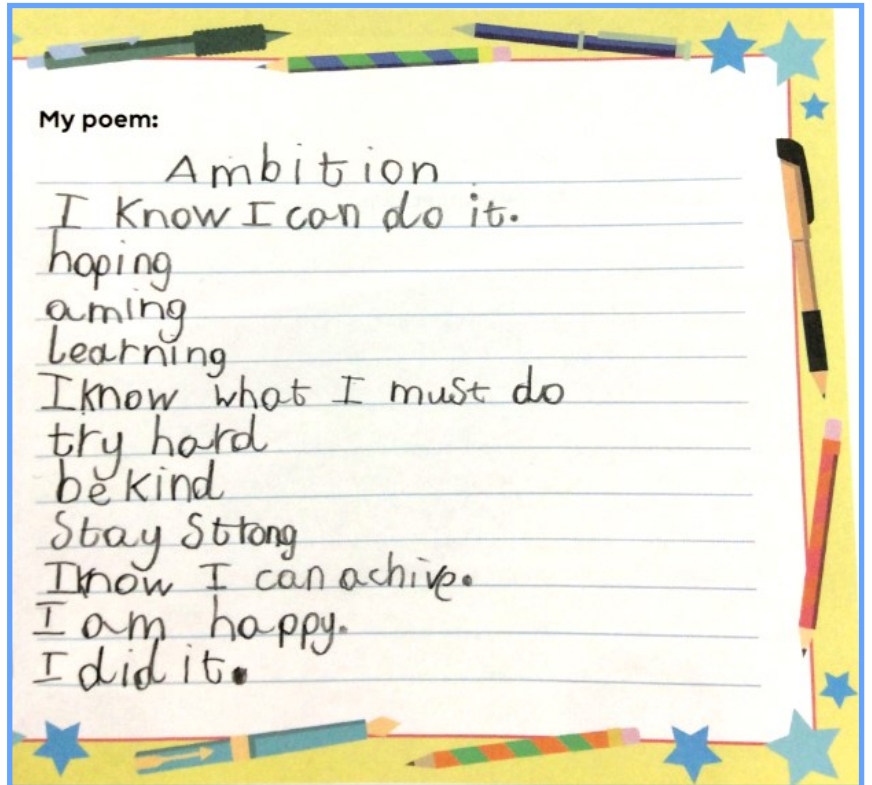 My poem:
Ambition
I know I can do it.
hoping
aming
learning
I know what I must do
try hard
be kind
Stay Strong
I know I can achive.
I am happy.
I did it.